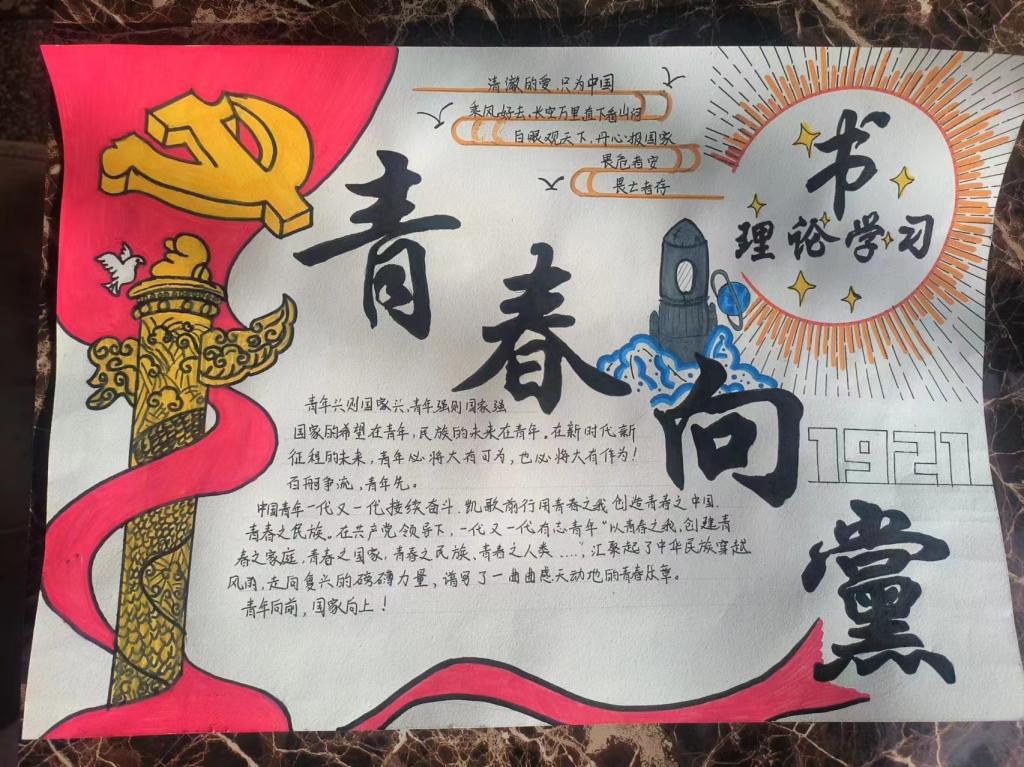 清澈的爱,只为中国
乘风好去,长空万里直下看山河
白眼观天下,丹心报国家
畏危者安
畏亡者存
书
理论学习
青
春
向
黨
1921
青年兴则国家兴,青年强则国家强
国家的希望在青年,民族的未来在青年。在新时代新
征程的未来,青年必将大有可为,也必将大有作为!
百舸争流,青年先。
中国青年一代又一代接续奋斗、凯歌前行用青春之我创造青春之中国、
青春之民族。在共产党领导下,一代又一代有志青年“以青春之我,创建青
春之家庭,青春之国家,青春之民族、青春之人类……”,汇聚起了中华民族穿越
风雨,走向复兴的磅礴力量,谱写了一曲曲感天动地的青春故事。
青年向前,国家向上!